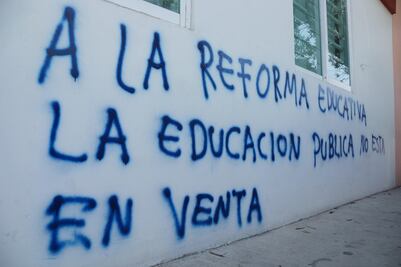 A LA REFORMA EDUCATIVA
LA EDUCACION PUBLICA NO ESTA
EN VENTA